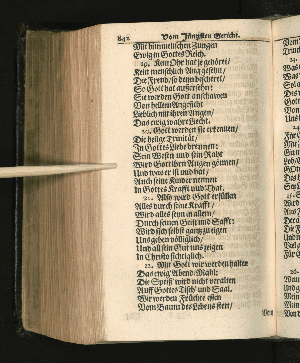 842 Vom Jüngsten Gericht.
Mit himmelischen Zungen
Ewig in Gottes Reich.
19. Kein Ohr hat je gehöret/
Kein menschlich Aug gesehn/
Die Freud/ so den beschehret/
So Gott hat außersehen:
Sie werden Gott anschawen
Von hellem Angesicht
Lieblich mit ihren Augen/
Das ewig wahre Liecht.
20. Gott werden sie erkennen/
Die heilge Trinität/
In Gottes Liebe brennen:
Sein Wesen und sein Raht
Wird Gott ihrn Augen gönnen/
Und was er ist und hat/
Auch seine Kinder nennen
In Gottes Krafft und That.
21. Also wird Gott erfüllen
Alles durch seine Krafft/
Wird alles seyn in allen/
Durch seinen Geist und Safft:
Wird sich selbst gantz zeigen
Uns geben völliglich/
Und all sein Gut uns eigen
In Christo sichtiglich.
22. Mit Gott wir werden halten
Das ewig Abend-Mahl:
Die Speiß wird nicht veralten
Auff Gottes Tisch und Saal.
Wir werden Früchte essen
Vom Baum des Lebens stets/
Von